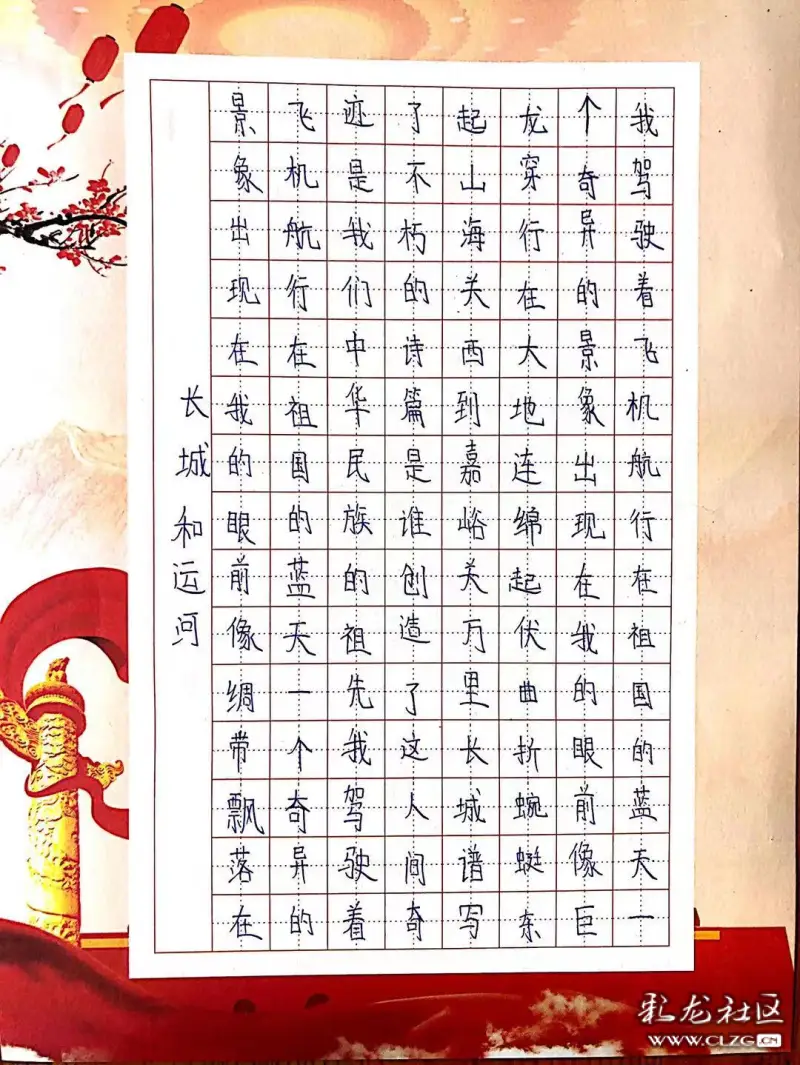 我驾驶着飞机航行在祖国的蓝天一
个奇异的景象出现在我的眼前像巨
龙穿行在大地连绵起伏曲折蜿蜒东
起山海关西到嘉峪关万里长城谱写
了不朽的诗篇是谁创造了这人间奇
迹是我们中华民族的祖先我驾驶着
飞机航行在祖国的蓝天一个奇异的
景象出现在我的眼前像绸带飘落在
长城和运河
彩龙社区
WWW.CLZG.CN